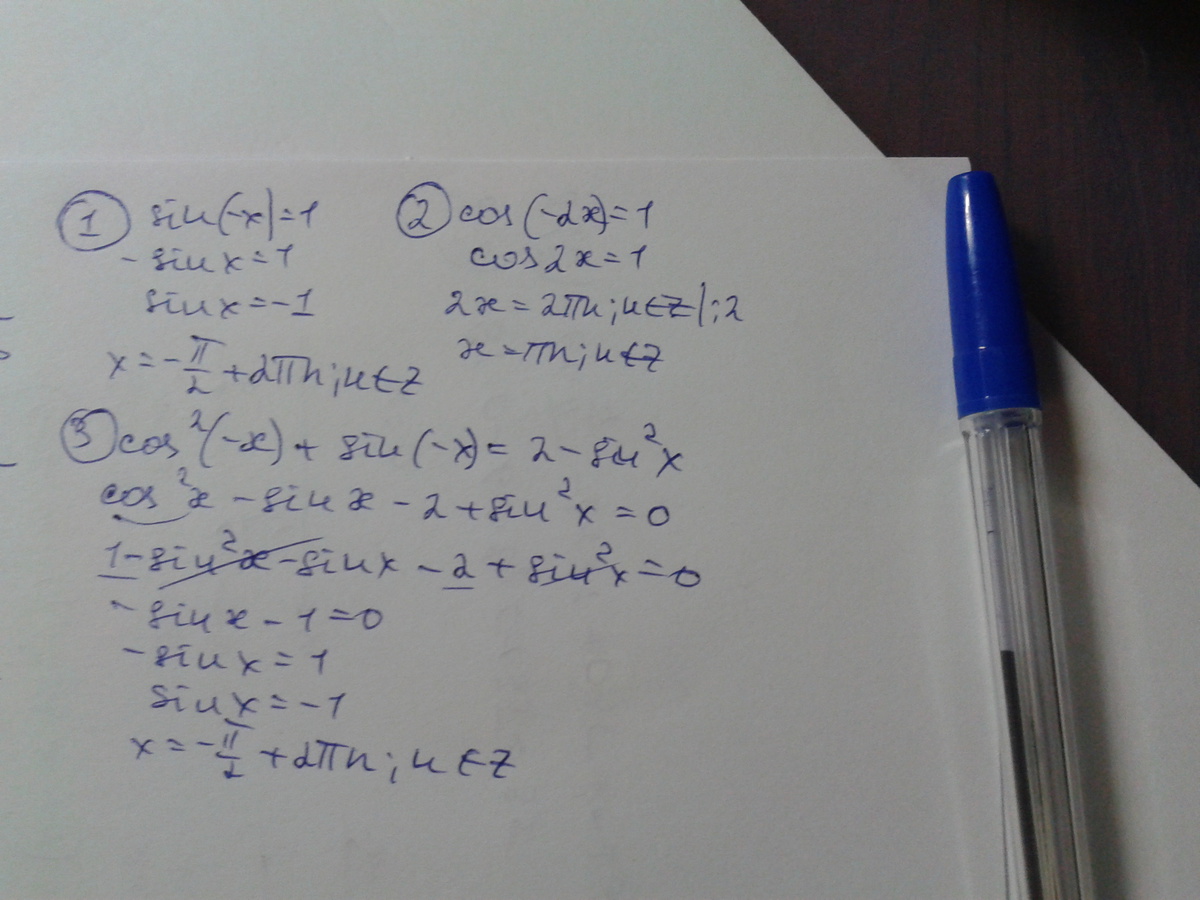 ① sin(-x)=1
- sin x = 1
sin x = -1
x = -π/2 + 2πn; n∈Z
② cos(-2x)=1
cos2x=1
2x = 2πn; n∈Z |:2
x = πn; n∈Z
③ cos²(-x) + sin(-x) = 2 - sin²x
cos²x - sin x - 2 + sin²x = 0
1 - sin²x - sin x - 2 + sin²x = 0
- sin x - 1 = 0
- sin x = 1
sin x = -1
x = -π/2 + 2πn; n∈Z